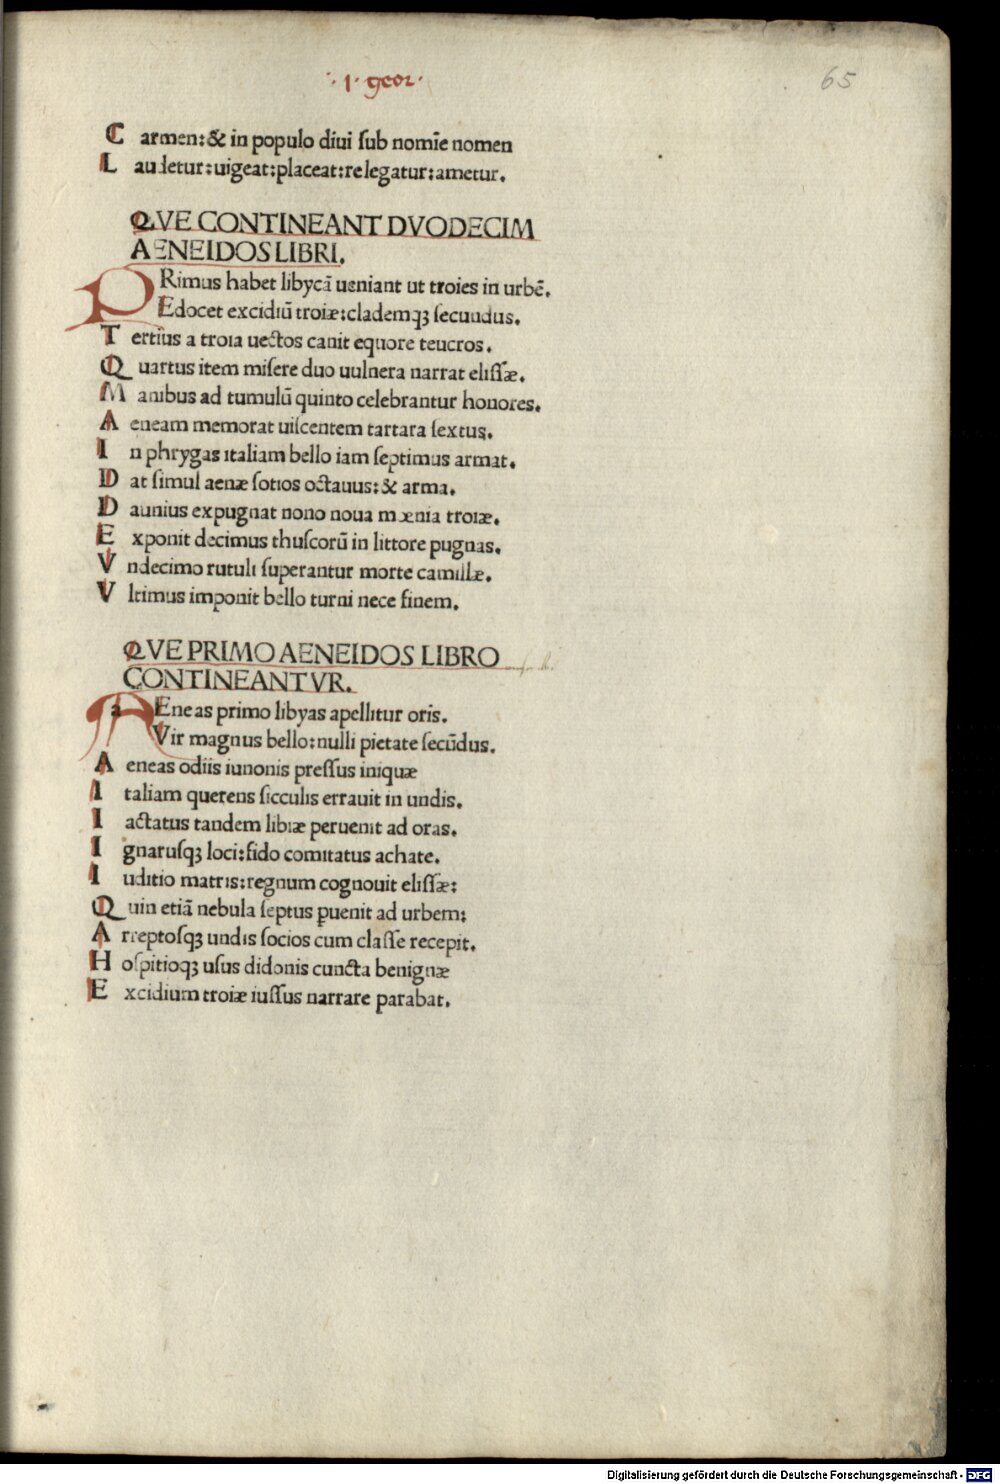 ·I· geor·
65
C armen:& in populo diui ſub nomīe nomen
L audetur:uigeat:placeat:relegatur:ametur.
QVE CONTINEANT DVODECIM
AENEIDOS LIBRI.
PRimus habet libycā ueniant ut troies in urbē.
Edocet excidiū troiæ:clademqꝫ ſecundus.
T ertius a troia uectos canit equore teucros.
Q uartus item miſere duo uulnera narrat eliſſæ.
M anibus ad tumulū quinto celebrantur honores.
A eneam memorat uiſcentem tartara ſextus.
I n phrygas italiam bello iam ſeptimus armat.
D at ſimul aenæ ſotios octauus:& arma.
D aunius expugnat nono noua mœnia troiæ.
E xponit decimus thuſcorū in littore pugnas.
V ndecimo rutuli ſuperantur morte camillæ.
V ltimus imponit bello turni nece finem.
QVE PRIMO AENEIDOS LIBRO
CONTINEANTVR.
AEneas primo libyas apellitur oris.
Vir magnus bello:nulli pietate ſecūdus.
A eneas odiis iunonis preſſus iniquæ
I taliam querens ſicculis errauit in undis.
I actatus tandem libiæ peruenit ad oras.
I gnaruſqꝫ loci:fido comitatus achate.
I uditio matris:regnum cognouit eliſſæ:
Q uin etiā nebula ſeptus ꝑuenit ad urbem:
A rreptoſqꝫ undis ſocios cum claſſe recepit.
H oſpitioqꝫ uſus didonis cuncta benignæ
E xcidium troiæ iuſſus narrare parabat.
Digitalisierung gefördert durch die Deutsche Forschungsgemeinschaft - DFG